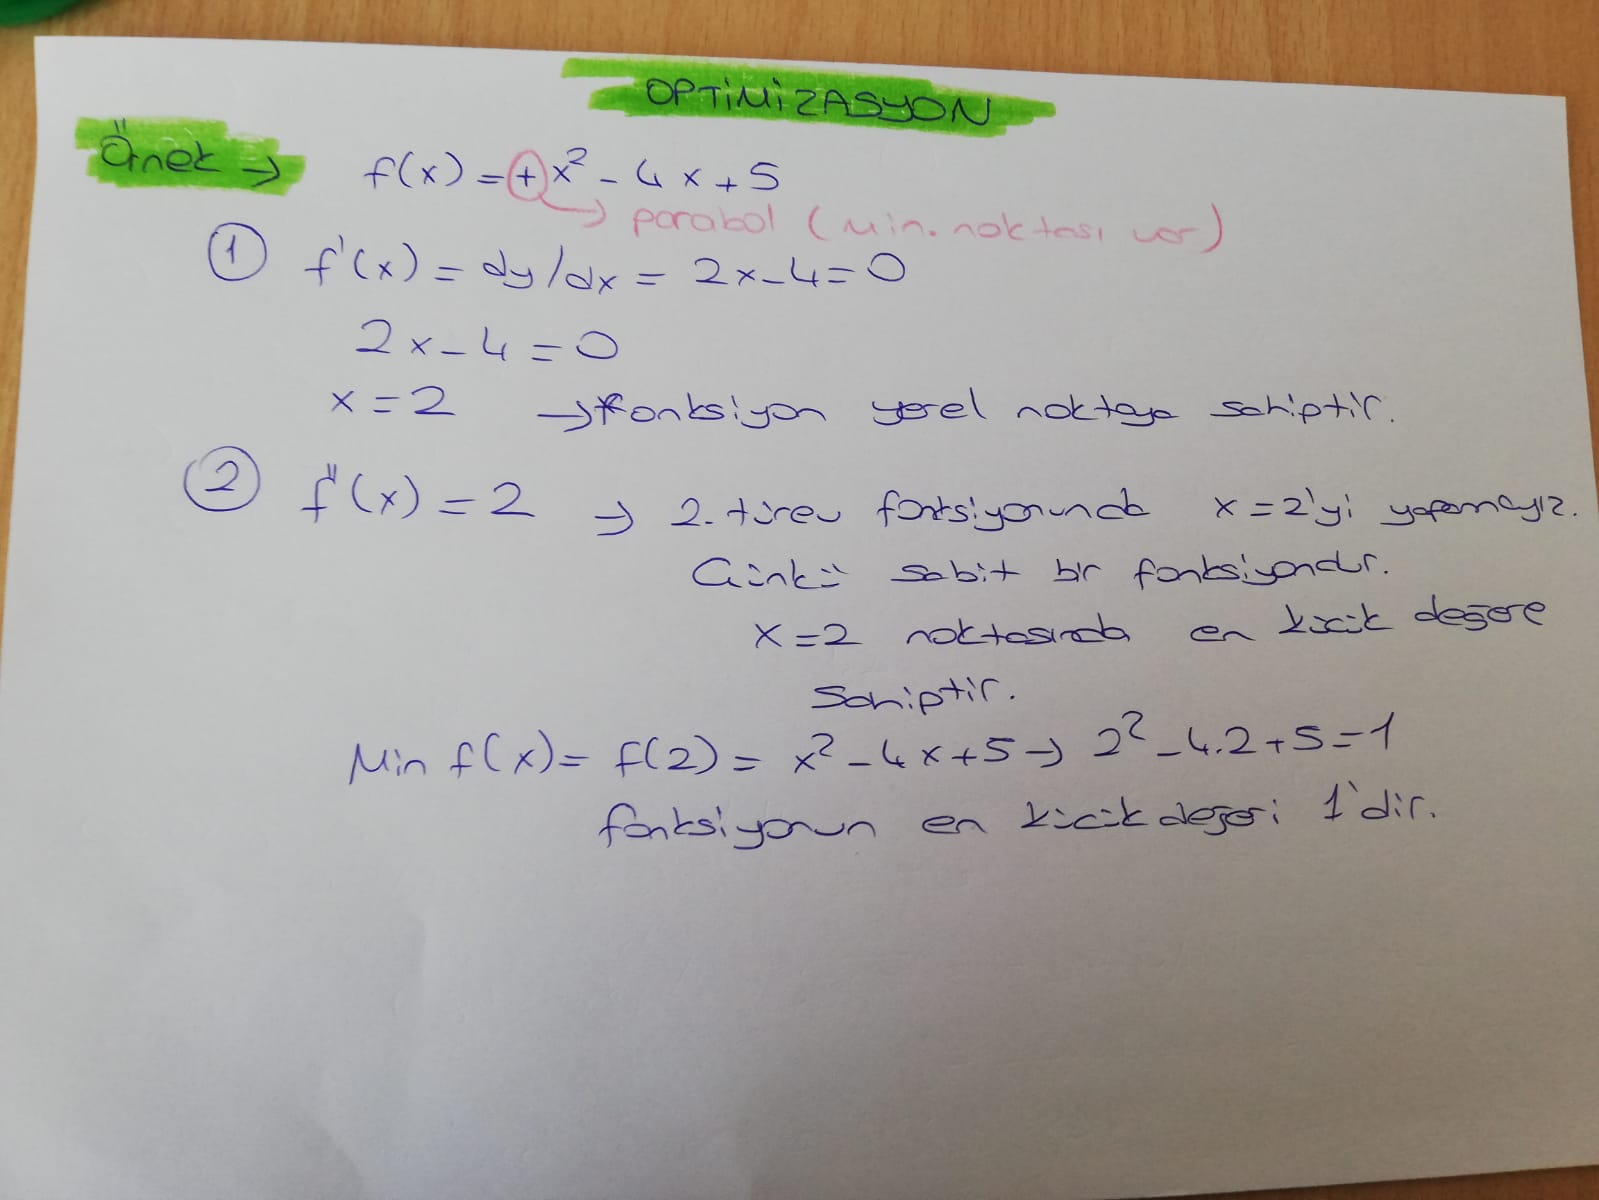 OPTİMİZASYON
Örnek → f(x) = + x² - 4x + 5
→ parabol (Min. noktası var)
① f'(x) = dy/dx = 2x - 4 = 0
2x - 4 = 0
x = 2 → fonksiyon yerel noktaya sahiptir.
② f''(x) = 2 → 2. türev fonksiyonunda x = 2'yi yapamayız.
Çünkü sabit bir fonksiyondur.
x = 2 noktasında en küçük değere
sahiptir.
Min f(x) = f(2) = x² - 4x + 5 → 2² - 4.2 + 5 = 1
fonksiyonun en küçük değeri 1'dir.